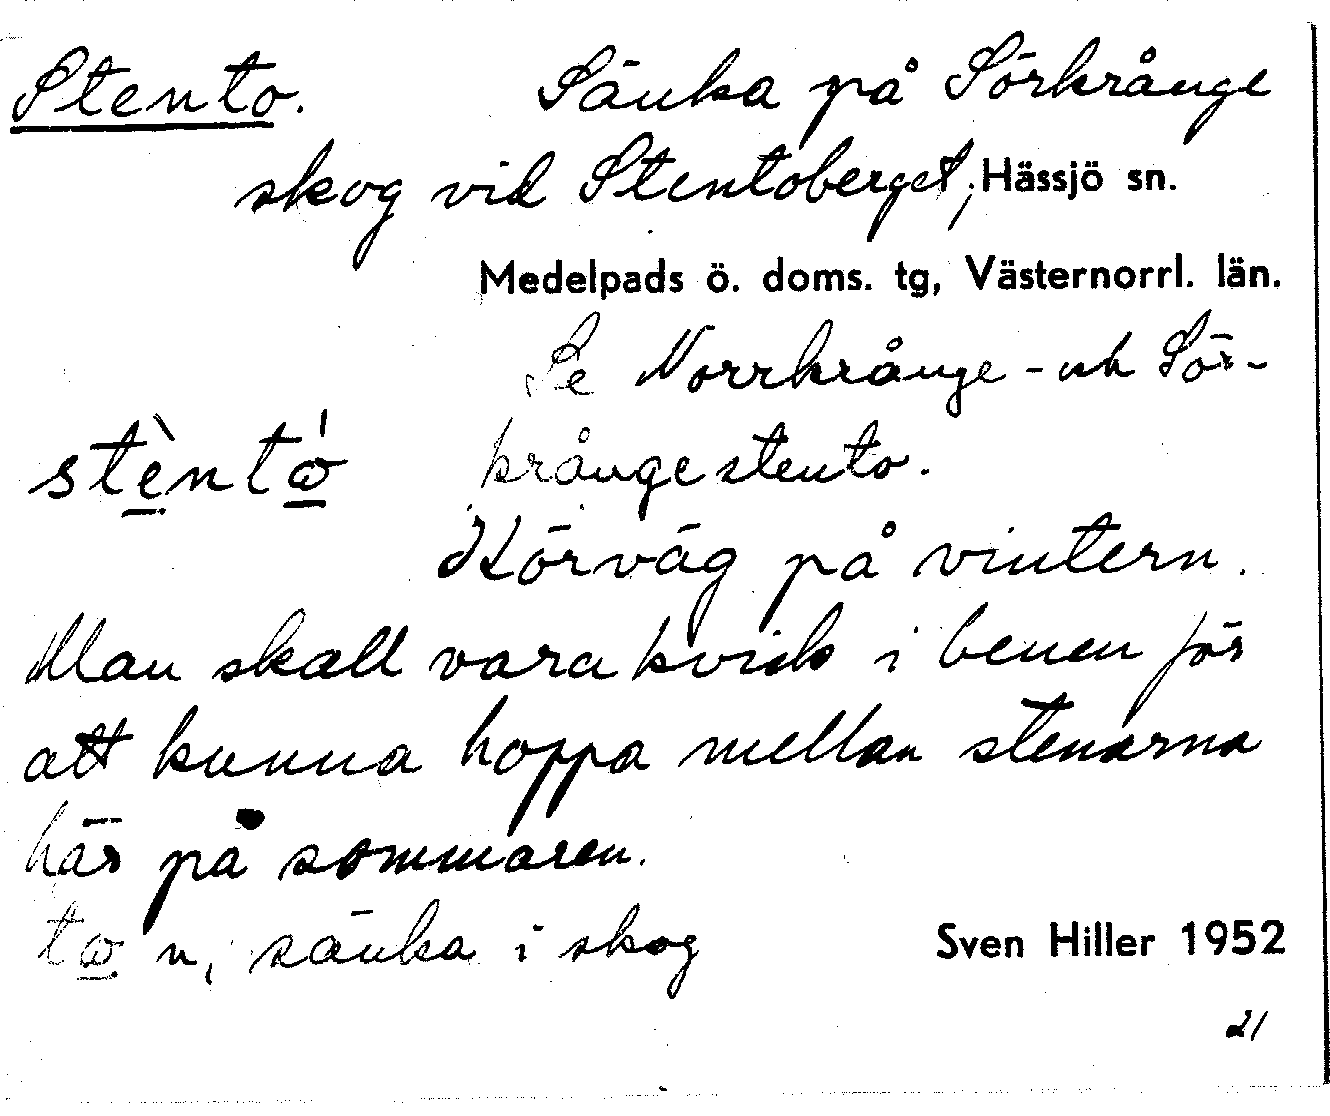 Stento. Sänka på Sörkrånge
skog vid Stentoberget, Hässjö sn.
Medelpads ö. doms. tg, Västernorrl. län.
Se Norrkrånge- och Sör-
stèntώ̲ krångestento.
Körväg på vintern.
Man skall vara kvick i benen för
att kunna hoppa mellan stenarna
här på sommaren.
tω̲ n, sänka i skog Sven Hiller 1952
21